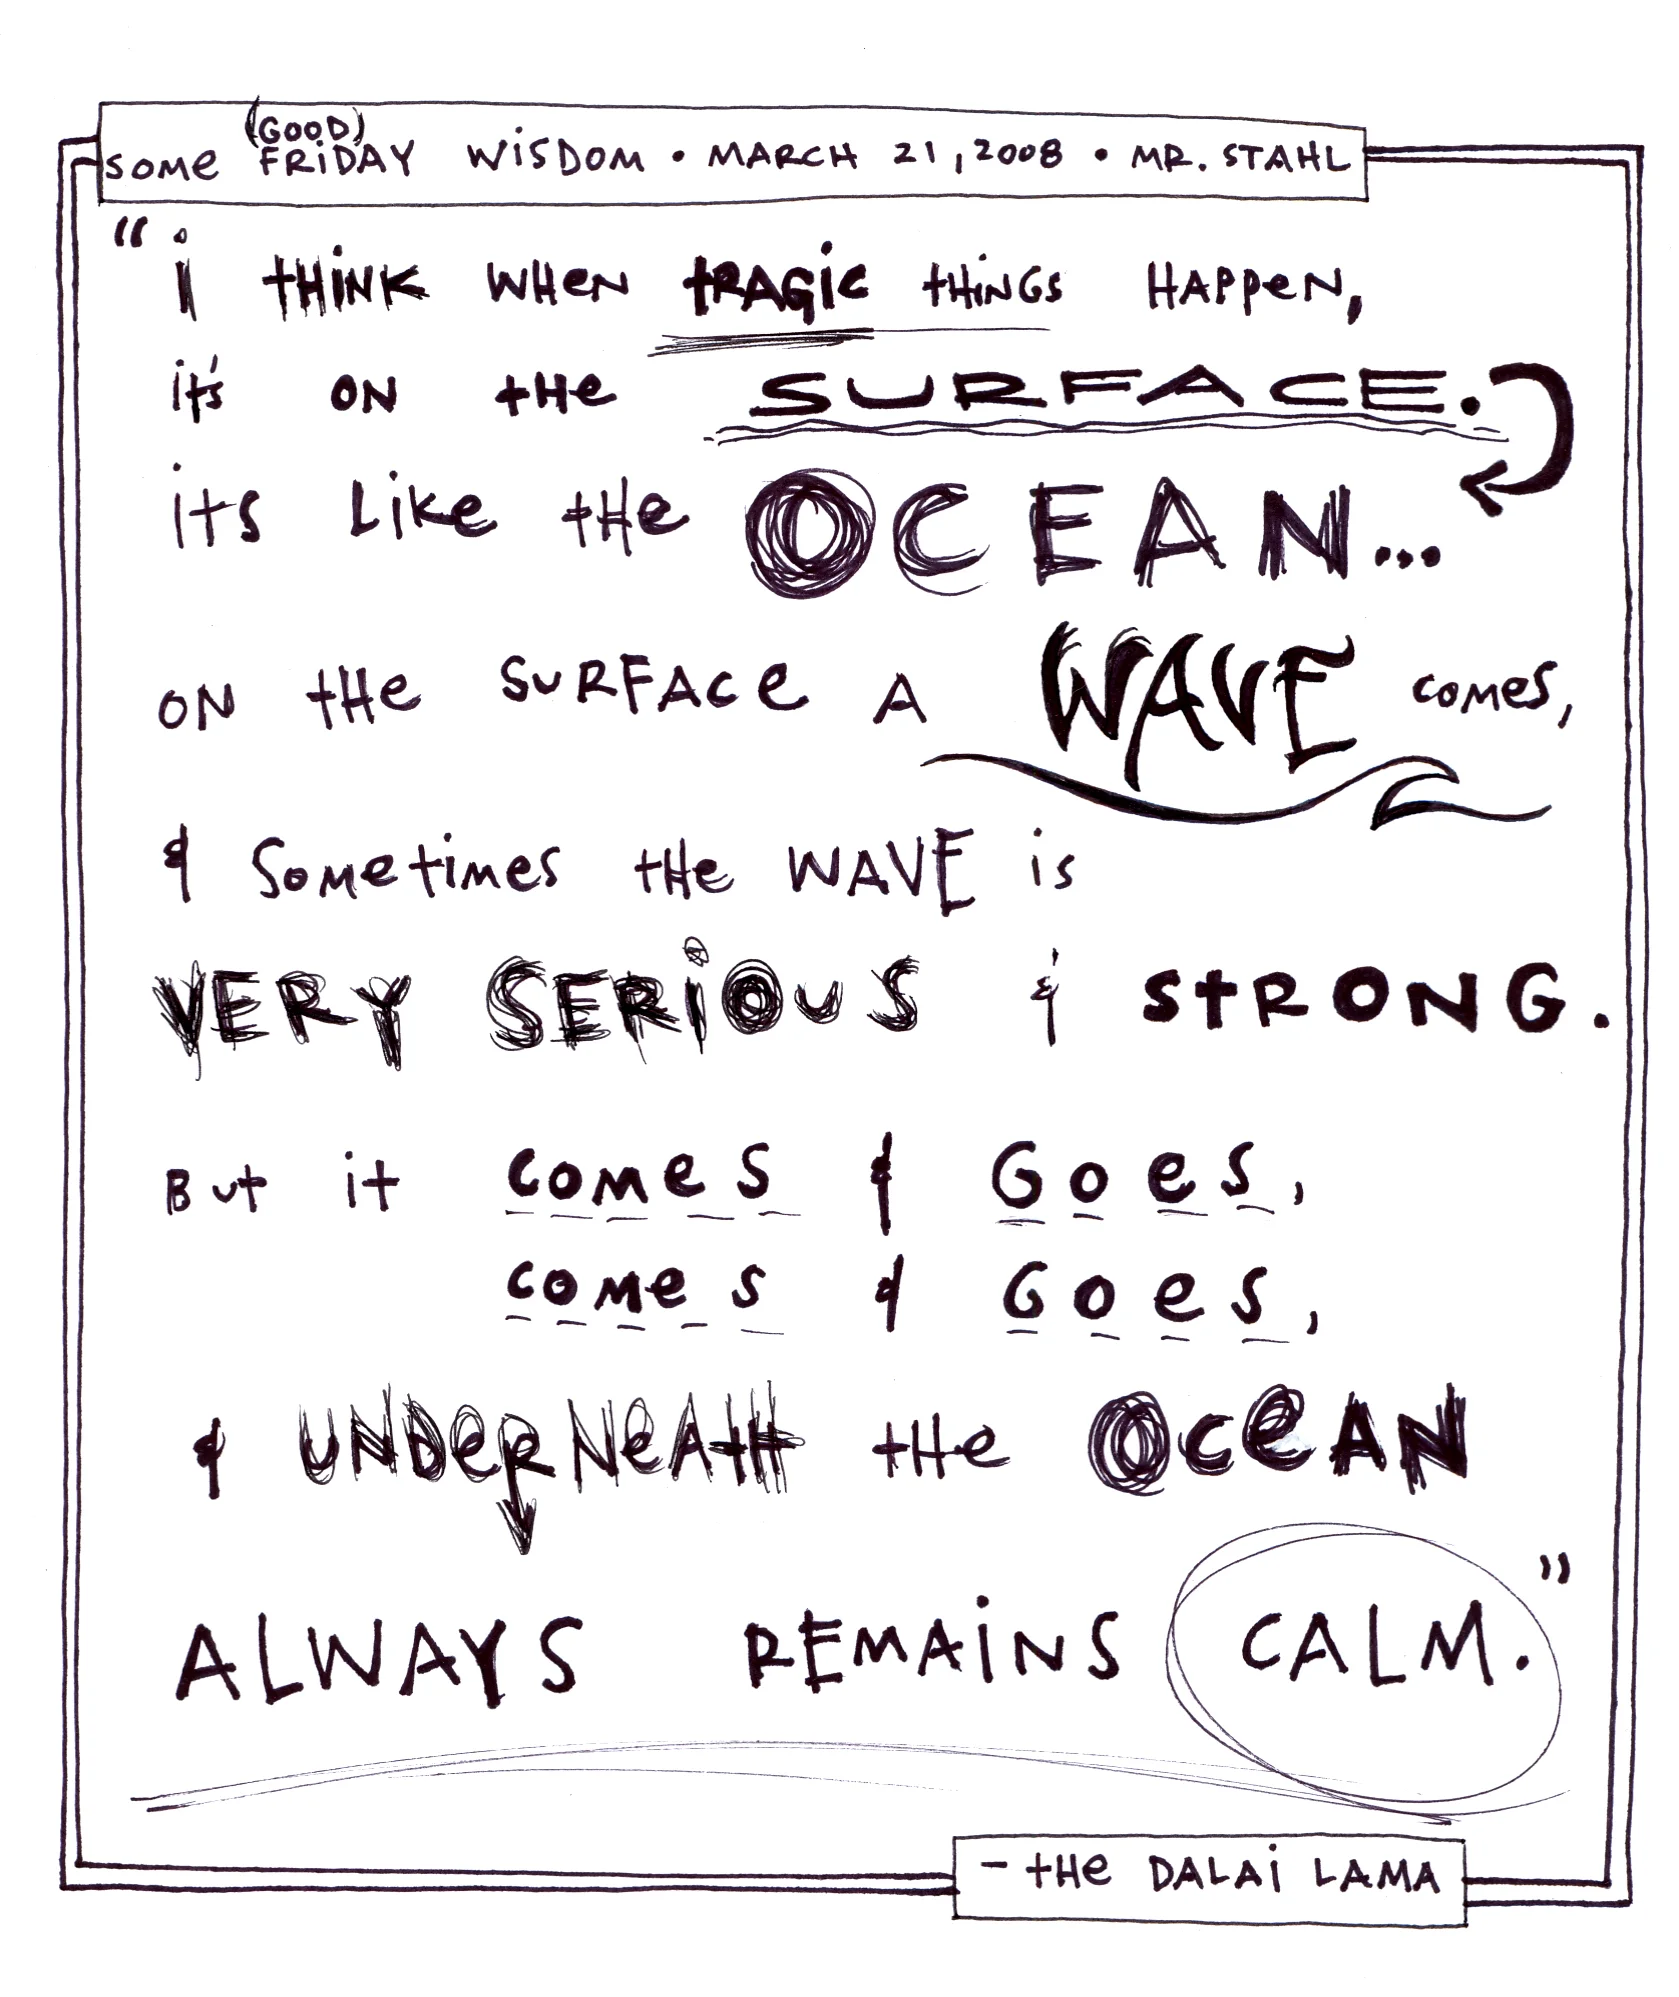 some (GOOD) FRiDAY WiSDOM • MARCH 21, 2008 • MR. STAHL
“i tHiNK WHeN tRAGiC tHiNGS HAPPeN,
it's ON tHe SURFACE.
its Like tHe OCEAN...
ON tHe SuRFACe A WAVE comes,
& Sometimes tHe WAVE is
VERY SERiOuS & StRONG.
But it comes & Goes,
comes & Goes,
& UNDeRNeAtH tHe OceAN
ALWAYS REMAiNS CALM.”
- tHe DALAi LAMA